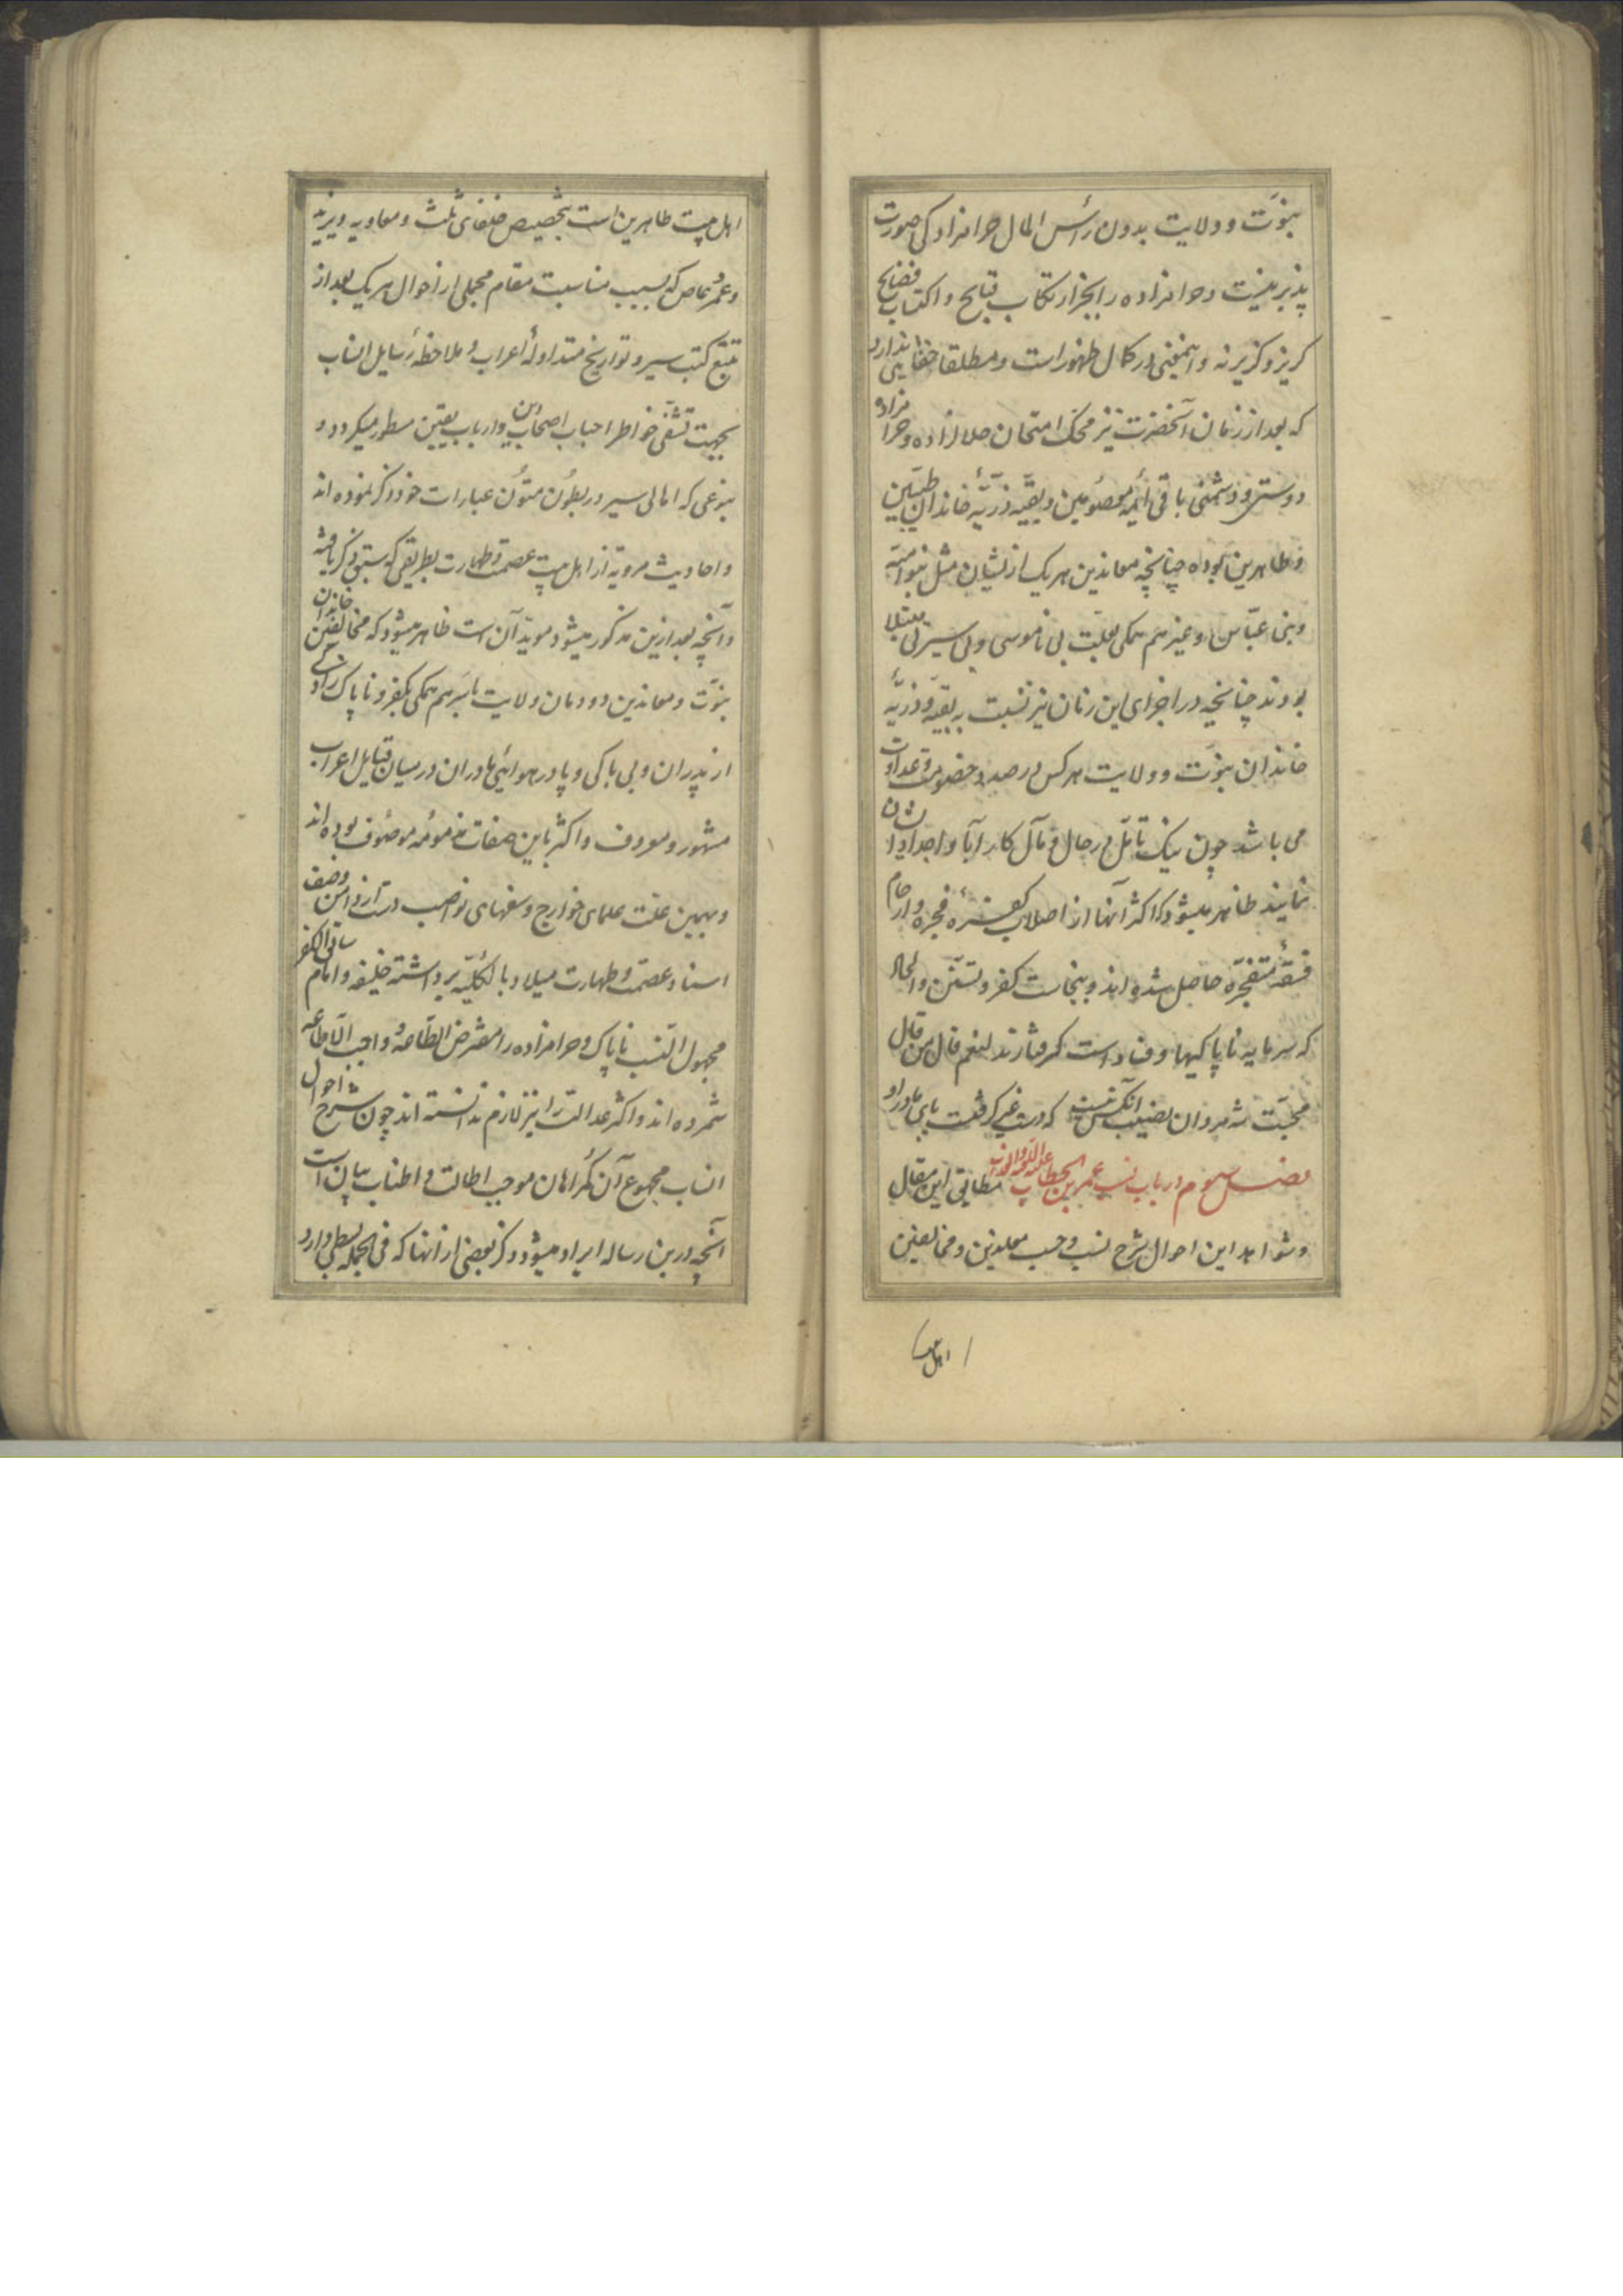 نبوّت و ولایت بدون رأس المال حرامزادکی صورت
پذیر نیست و حرامزاده را بجز ارتکاب قبایح و اکتساب فضایح
کریز و کزیر نه و اینمعنی در کمال ظهور است و مطلقا خفایی ندارد
که بعد از زمان آنحضرت نیز محک امتحان حلالزاده و حرامزاده
دوستی و دشمنی باقی ائمه معصومین و بقیّه ذرّیّه خاندان طیّبین
و طاهرین بوده چنانچه معاندین هر یک از ایشان مثل بنوامیّه
و بنی عبّاس و غیرهم همکی بعلّت بی ناموسی و بی سیرتی مبتلا
بودند چنانچه در اجزای این زمان نیز نسبت به بقیّه و ذرّیّه
خاندان نبوّت و ولایت هر کس در صدد خصومت و عداوت
می باشد چون نیک تامّل در حال و مآل کار آبا و اجداد ایشان
نمایند ظاهر میشود که اکثر آنها از اصلاب کفره فجره و ارحام
فسقهٔ متفجّره حاصل شده اند و بنجاست کفر و تسنّن و الحاد
که سرمایه ناپاکیها و فساد است کرفتارند لنعم قال من قال
محبّت شه مردان نصیب آنکس نیست که دست غیر کرفتست پای مادر او
فصل سیوم در باب نسب عمر بن الخطاب علیه اللعنه والعذاب مطابق این مقال
و شواهد این احوال شرح نسب و حسب معاندین و مخالفین
اهل بیت
اهل بیت طاهرین است بتخصیص خلفای ثلث و معاویه و یزید
و عمرو عاص که بسبب مناسبت مقام مجملی از احوال هر یک بعد از
تتبّع کتب سیر و تواریخ متداولهٔ اعراب و ملاحظهٔ رسایل انساب
بجهت تشفّی خواطر احباب اصحاب دین و ارباب یقین مسطور میکردد و
بنوعی که اهالی سیر در بطون متون عبارات خود ذکر نموده اند
و احادیث مرویّه از اهل بیت عصمت و طهارت بطریقی که سبق ذکر یافته
و آنچه بعد ازین مذکور میشود موید آن است ظاهر میشود که مخالفین خاندان
نبوّت و معاندین دودمان ولایت باسرهم همکی بکفر و ناپاک زادکی
از پدران و بی باکی و پا در هوائی مادران در میان قبایل اعراب
مشهور و معروف و اکثر باین صفات مذمومه موصوف بوده اند
و بهمین علّت علمای خوارج و سفهای نواصب دست از دامن وصف
اسناد عصمت و طهارت میلاد بالکلّیّه برداشته خلیفه و امام سابق الکفر
مجهول النّسب ناپاک و حرامزاده را مفترض الطّاعه و واجب الاطاعه
شمرده اند و اکثر عدالت را نیز لازم ندانسته اند چون شرح احوال
انساب مجموع آن کمراهان موجب اطالت و اطناب بیان است
آنچه درین رساله ایراد میشود ذکر بعضی از آنها که فی الجمله بسطی دارد